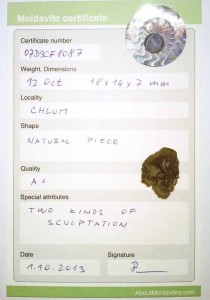 Moldavite certificate
Certificate number
07DSCF8087
Weight, Dimensions
12.0ct 18x14x7 mm
Locality
CHLUM
Shape
NATURAL PIECE
Quality
A+
Special attributes
TWO KINDS OF
SCULPTATION
Date
Signature
1.10.2013
AboutMoldavites.com